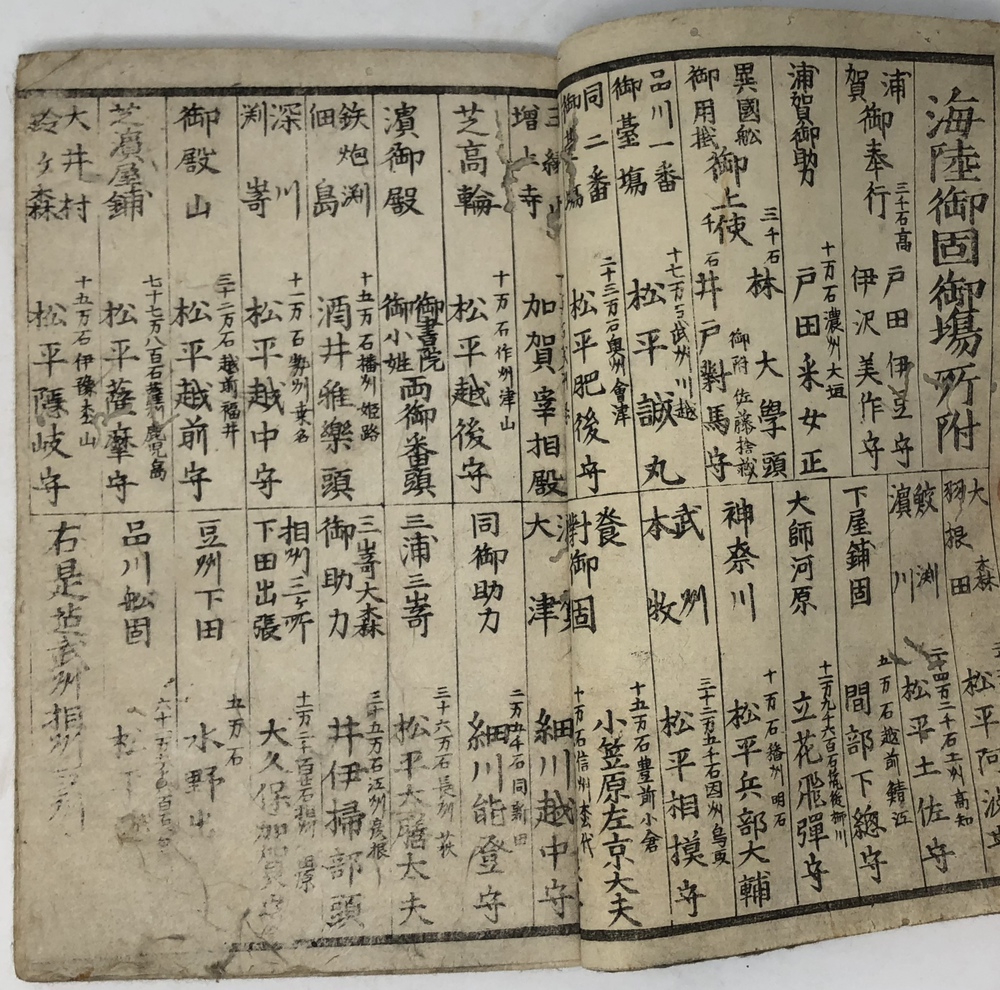 海陸御固御場所附
浦賀御奉行
三千石高
戸田伊豆守
伊沢美作守
浦賀御助力
十万石濃州大垣
戸田采女正
異國舩御用掛
御上使
三千石
林大學頭
千石
井戸對馬守
御附 佐藤捨蔵
品川一番御臺場
十七万石武州川越
松平誠丸
同二番
二十三万石奥州會津
松平肥後守
増上寺
加賀宰相殿
芝高輪
十万石作州津山
松平越後守
濱御殿
御書院
御小姓
両御番頭
鉄炮渕
佃島
十五万石播州姫路
酒井雅樂頭
深川
渕嵜
十一万石勢州桒名
松平越中守
御殿山
三十二万石越前福井
松平越前守
芝濱屋鋪
七十七万八百石薩州鹿児島
松平薩摩守
大井村
鈴ヶ森
十五万石伊豫松山
松平隠岐守
大森
羽根田
松平阿波守
鮫渕
濱川
二十四万二千石土州高知
松平土佐守
下屋鋪固
五万石越前鯖江
間部下總守
大師河原
十一万九千六百石筑後柳川
立花飛彈守
神奈川
十万石播州明石
松平兵部大輔
武州
本牧
三十二万五千石因州鳥取
松平相摸守
御固
十五万石豊前小倉
小笠原左京大夫
十万石信州松代
大津
細川越中守
同御助力
二万五千石同新田
細川能登守
三浦三嵜
三十六万石長州萩
松平大膳大夫
三嵜大森
御助力
三十五万石江州彦根
井伊掃部頭
相州三ヶ所
下田出張
大久保加賀守
豆州下田
五万石
水野出
品川舩固
松下
右是迠武州相州